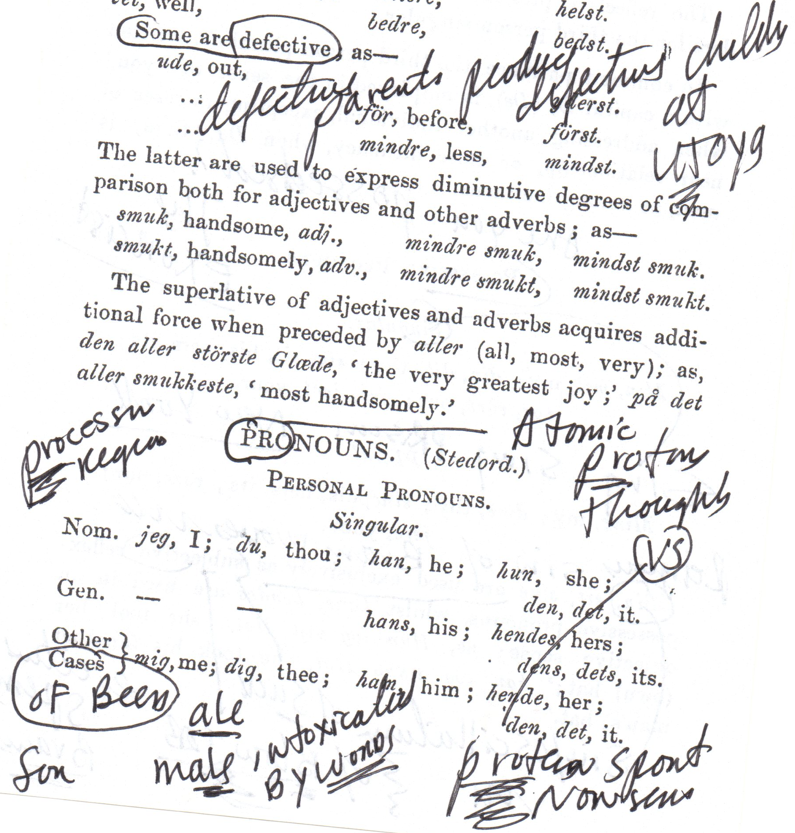 well,
bedre,
helst.
bedst.
Some are defective, as—
ude, out,
defective parents produce defective childs
at
UTOYA
... för, before, först.
... mindre, less, mindst.
The latter are used to express diminutive degrees of com-
parison both for adjectives and other adverbs; as—
smuk, handsome, adj., mindre smuk, mindst smuk.
smukt, handsomely, adv., mindre smukt, mindst smukt.
The superlative of adjectives and adverbs acquires addi-
tional force when preceded by aller (all, most, very); as,
den aller störste Glæde, ‘the very greatest joy;’ på det
aller smukkeste, ‘most handsomely.’
PRONOUNS. (Stedord.)
Atomic
proton
Thoughts
VS
PERSONAL PRONOUNS.
Singular.
Nom. jeg, I; du, thou; han, he; hun, she;
den, det, it.
Gen. — — hans, his; hendes, hers;
dens, dets, its.
Other
Cases } mig, me; dig, thee; ham, him; hende, her;
den, det, it.
OF Beer
ale
male
intoxicated
By Words
protein
Nonsens